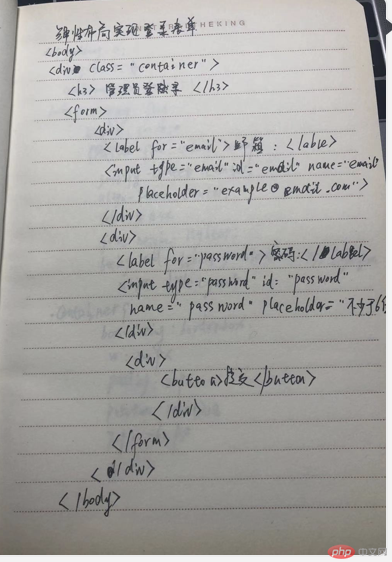 弹性布局实现登录表单
HEKING
<body>
<div class="container">
<h3>管理员登陆录</h3>
<form>
<div>
<label for="email">邮箱:</lable>
<input type="email" id="email" name="email"
placeholder="example@email.com">
</div>
<div>
<label for="password">密码:</label>
<input type="password" id:"password"
name="password" placeholder="不少于6位
</div>
<div>
<button>提交</button>
</div>
</form>
</div>
</body>
php 中文网